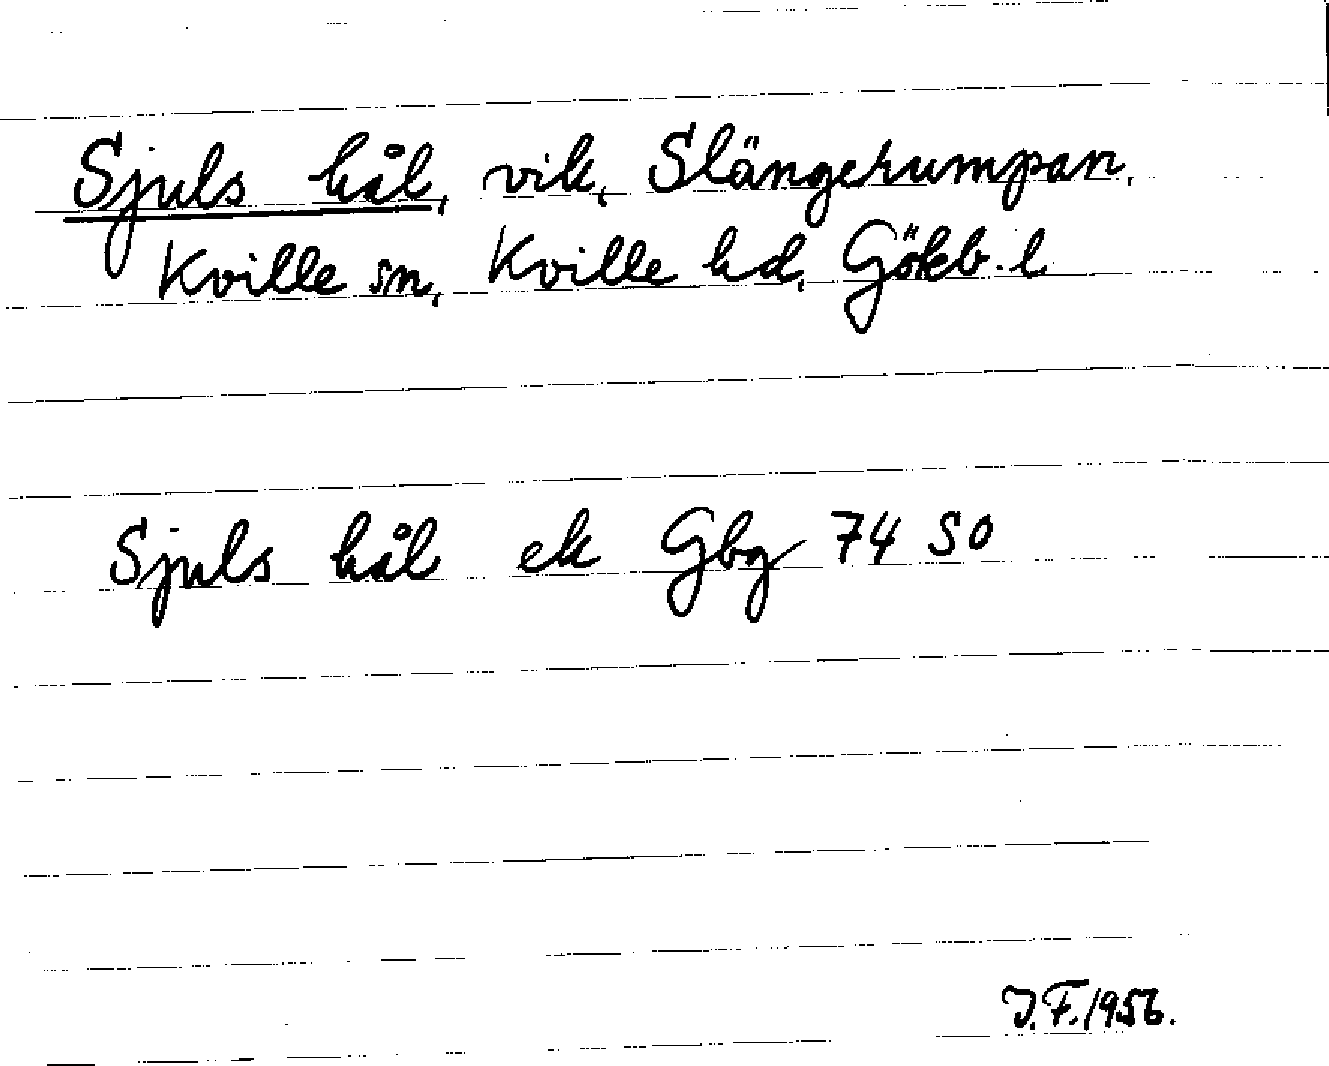 Sjuls hål, vik, Slängerumpan,
Kville sn, Kville hd, Götebb. l.
Sjuls hål ek Gbg 74 SO
J.F. 1956.